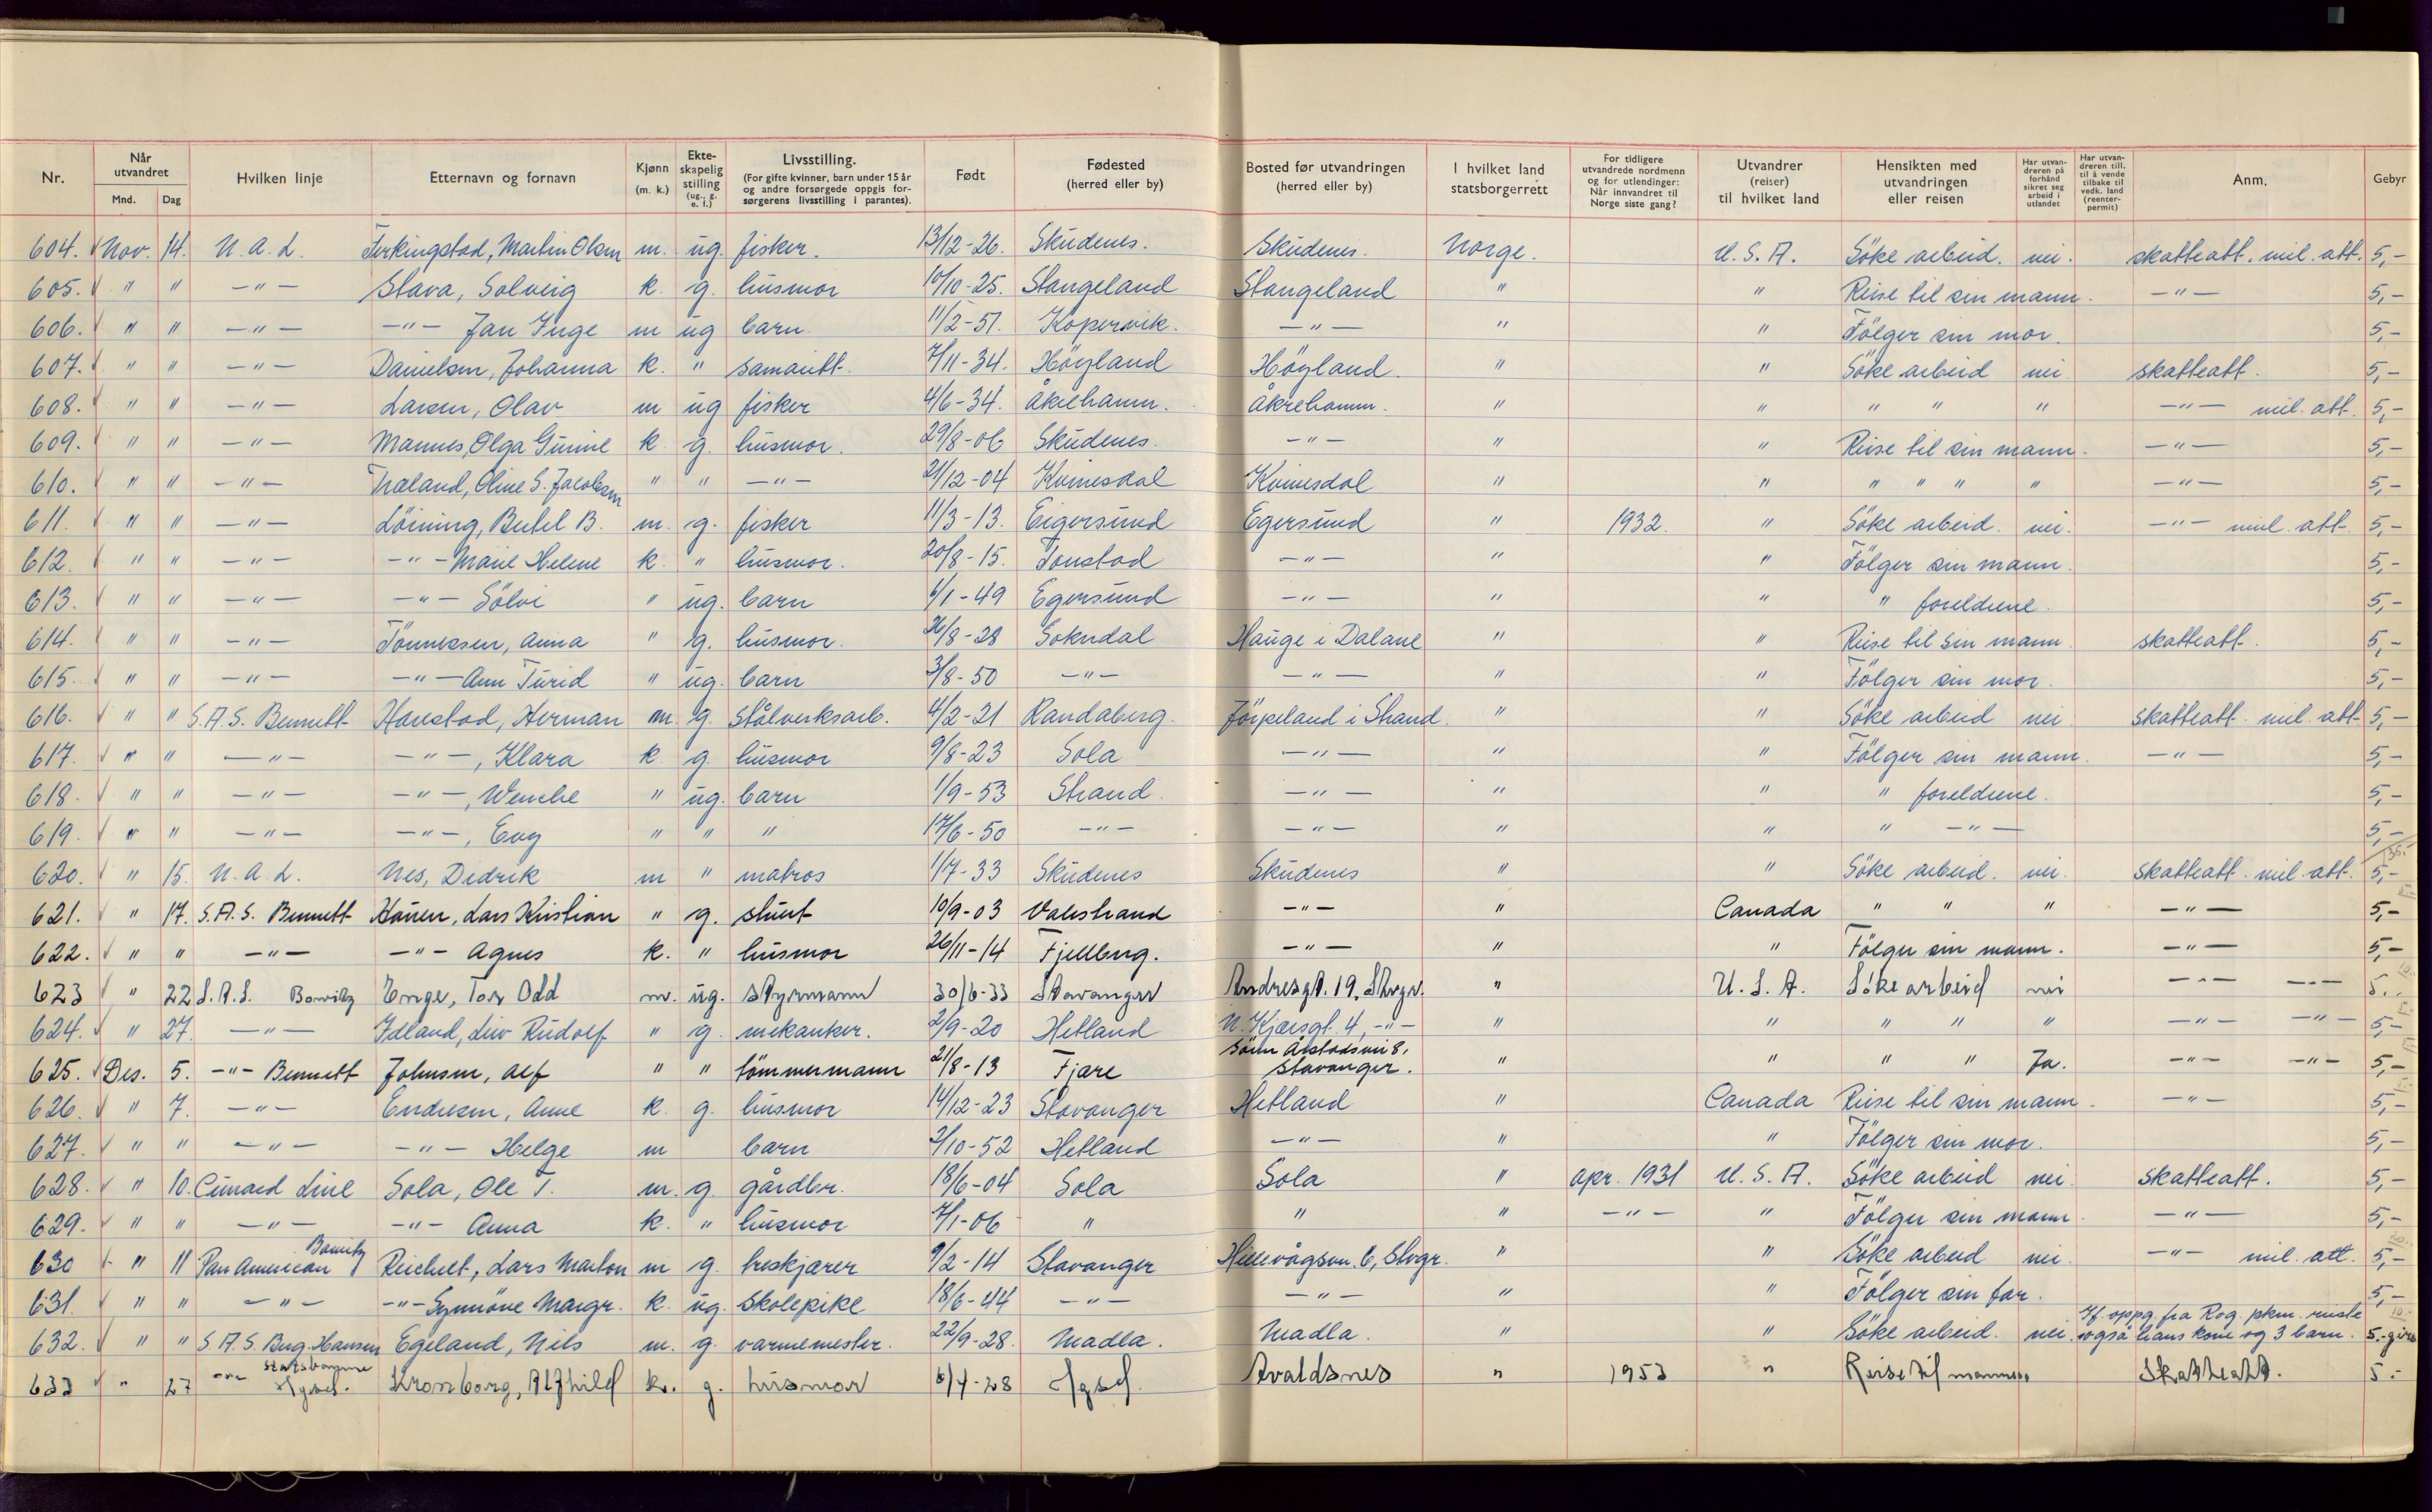 Nr. Når utvandret Mnd. Dag Hvilken linje Etternavn og fornavn Kjønn (m. k.) Ekteskapelig stilling (ug., g. e. f.) Livsstilling. (For gifte kvinner, barn under 15 år og andre forsørgede oppgis forsørgerens livsstilling i parantes). Født Fødested (herred eller by) Bosted før utvandringen (herred eller by) I hvilket land statsborgerrett For tidligere utvandrede nordmenn og for utlendinger: Når innvandret til Norge siste gang? Utvandrer (reiser) til hvilket land Hensikten med utvandringen eller reisen Har utvandreren på forhånd sikret seg arbeid i utlandet Har utvandreren till. til å vende tilbake til vedk. land (reenter-permit) Anm. Gebyr
604. Nov. 14. N. A. L. Ferkingstad, Martin Olsen m. ug. fisker. 13/12-26. Skudenes. Skudenes. Norge. U. S. A. Söke arbeid. nei. skatteatt. mil. att. 5,-
605. " " -"- Stava, Solveig k. g. husmor 10/10-25. Stangeland Stangeland " " Reise til sin mann. -"- 5,-
606. " " -"- -"- Jan Inge m ug barn. 11/2-51. Kopervik. -"- " " Fölger sin mor. 5,-
607. " " -"- Danielsen, Johanna k. " 7/11-34. Höyland Höyland. " " Söke arbeid nei. skatteatt. 5,-
608. " " -"- Larsen, Olav m ug fisker 4/6-34. Åkrehamn. Åkrehamn. " " " " " -"- mil. att. 5,-
609. " " -"- Mannes, Olga Gurine k. g. husmor. 29/8-06 Skudenes. -"- " " Reise til sin mann. -"- 5,-
610. " " -"- Træland, Oline S. Jacobsen " " -"- 21/12-04 Kvinesdal Kvinesdal " " " " " " -"- 5,-
611. " " -"- Löining, Bertel B. m. g. fisker 11/3-13. Eigersund Egersund " 1932. " Söke arbeid. nei. -"- mil. att. 5,-
612. " " -"- -"- Marie Helene k. " husmor. 20/8-15. Tonstad -"- " " Fölger sin mann. 5,-
613. " " -"- -"- Sölvi " ug. barn 6/1-49 Egersund -"- " " " foreldrene. 5,-
614. " " -"- Tönnessen, Anna " g. husmor. 26/8-28 Sokndal Hauge i Dalane " " Reise til sin mann. skatteatt. 5,-
615. " " -"- -"- Ann Turid " ug. barn 3/8-50 -"- -"- " " Fölger sin mor. 5,-
616. " " S.A.S. Bennett Harestad, Herman m. g. stålverksarb. 4/2-21 Randaberg. Jörpeland i Strand. " " Söke arbeid nei skatteatt. mil. att. 5,-
617. " " -"- -"-, Klara k. g. husmor 9/8-23 Sola -"- " " Fölger sin mann. -"- 5,-
618. " " -"- -"-, Wenche " ug. barn 1/9-53 Strand. -"- " " " foreldrene. 5,-
619. " " -"- -"-, Evy " " " 17/6-50 -"- -"- " " " -"- 5,-
620. " 15. N. A. L. Nes, Didrik m " matros 1/7-33 Skudenes Skudenes " " Söke arbeid. nei. skatteatt. mil. att. 5,-
621. " 17. S.A.S. Bennett Hauen, Lars Kristian " g. stuert 10/9-03 Valestrand -"- " Canada " " " -"- 5,-
622. " " -"- -"- Agnes k. " husmor 26/11-14 Fjellberg. -"- " " Fölger sin mann. -"- 5,-
623 " 22 S.A.S. Enge, Tor Odd m. ug. styrmann 30/6-33 Stavanger Andresgt. 19, Stvgr. " U. S. A. Söke arbeid nei -"- -"- 5.-
624. " 27. -"- Idland, Liv Rudolf " g. mekaniker. 2/9-20 Hetland N. Kjærsgt. 4, -"- " " " " " -"- -"- 5,-
625. Des. 5. -"- Bennett Johnsen, Alf " " tömmermann 21/8-13 Fjære Stavanger. " " " " Ja. -"- -"- 5,-
626. " 7. -"- Endresen, Anne k. g. husmor 14/12-23 Stavanger Hetland " Canada Reise til sin mann. -"- 5,-
627. " " -"- -"- Helge m barn 2/10-52 Hetland -"- " " Fölger sin mor. 5,-
628. " 10. Cunard Line Sola, Ole T. m. g. gårdbr. 18/6-04 Sola Sola " apr. 1931 U. S. A. Söke arbeid nei. skatteatt. 5,-
629. " " -"- -"- Anna k. " husmor 7/1-06 " " " -"- " Fölger sin mann. -"- 5,-
630 " 11 Pan American Reichelt, Lars Marton m g. treskjærer 9/2-14 Stavanger Hillevågsvn. 6, Stvgr. " " Söke arbeid nei. -"- mil. att. 5,-
631. " " -"- -"- Synnöve Margr. k. ug. skolepike 18/6-44 -"- -"- " " Fölger sin far. 5,-
632. " " S.A.S. Berg-Hansen Egeland, Nils m. g. varmemester. 22/9-28. Madla. Madla. " " Söke arbeid. nei. If. oppg. fra Rog. pkm. reiste også hans kone og 3 barn. 5.- giro
633 " 27 Kronborg, Alfhild k. g. husmor 6/4-28 Avaldsnes " 1953 " Reise til mannen Skatteatt. 5.-